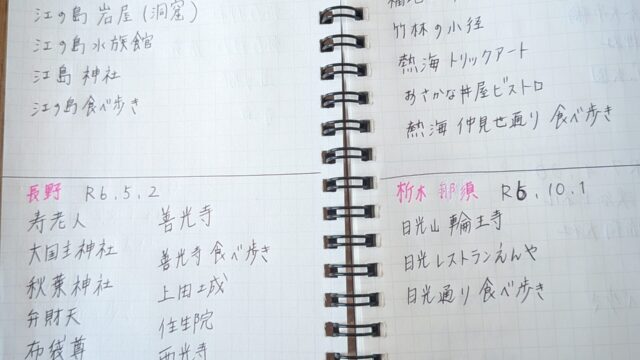 江の島 岩屋 (洞窟)
江の島 水族館
江島 神社
江の島 食べ歩き
長野 R6.5.2
寿老人 善光寺
大国主神社 善光寺 食べ歩き
秋葉神社 上田城
弁財天 往生院
布袋尊 西光寺
竹林の小径
熱海 トリックアート
おさかな丼屋ビストロ
熱海 仲見世通り 食べ歩き
栃木 那須 R6.10.1
日光山 輪王寺
日光 レストランえんや
日光通り 食べ歩き